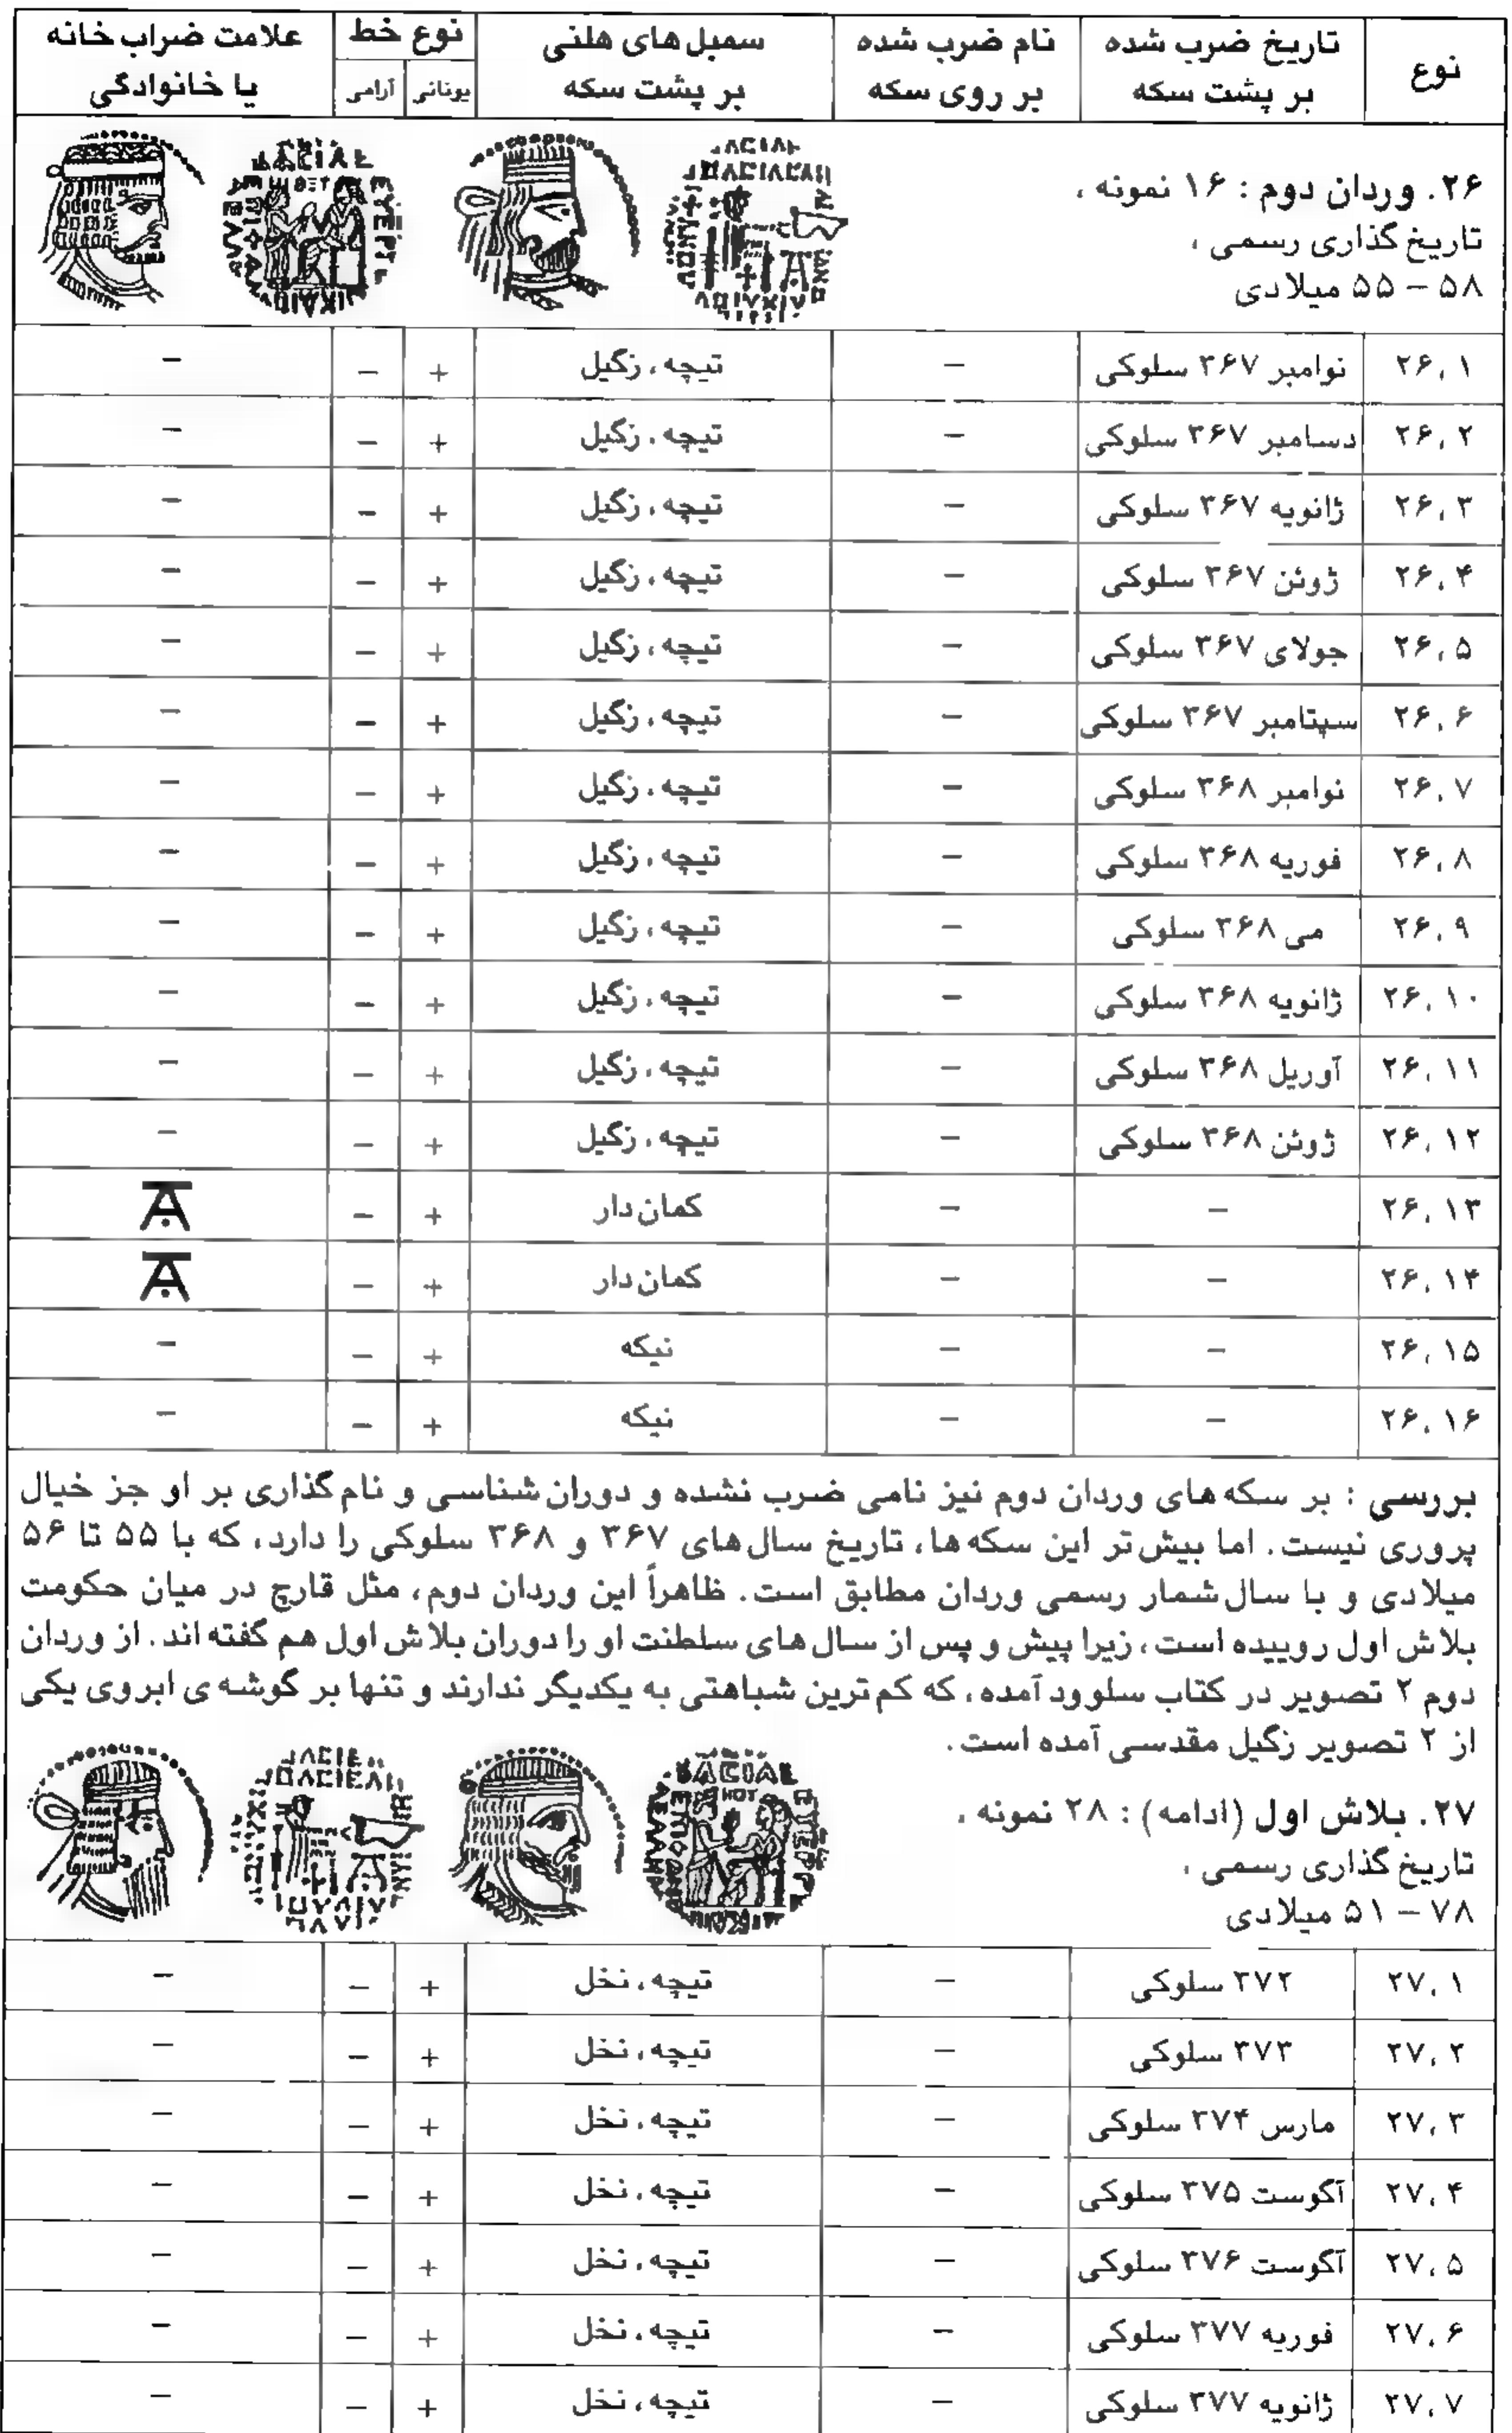 نوع | تاریخ ضرب شده بر پشت سکه | نام ضرب شده بر روی سکه | سمبل های هلنی بر پشت سکه | نوع خط: یونانی | نوع خط: آرامی | علامت ضراب خانه یا خانوادگی
۲۶. وردان دوم : ۱۶ نمونه ،
تاریخ گذاری رسمی ،
۵۸ – ۵۵ میلادی
۲۶،۱ | نوامبر ۳۶۷ سلوکی | – | تیچه، زگیل | + | – | –
۲۶،۲ | دسامبر ۳۶۷ سلوکی | – | تیچه، زگیل | + | – | –
۲۶،۳ | ژانویه ۳۶۷ سلوکی | – | تیچه، زگیل | + | – | –
۲۶،۴ | ژوئن ۳۶۷ سلوکی | – | تیچه، زگیل | + | – | –
۲۶،۵ | جولای ۳۶۷ سلوکی | – | تیچه، زگیل | + | – | –
۲۶،۶ | سپتامبر ۳۶۷ سلوکی | – | تیچه، زگیل | + | – | –
۲۶،۷ | نوامبر ۳۶۸ سلوکی | – | تیچه، زگیل | + | – | –
۲۶،۸ | فوریه ۳۶۸ سلوکی | – | تیچه، زگیل | + | – | –
۲۶،۹ | می ۳۶۸ سلوکی | – | تیچه، زگیل | + | – | –
۲۶،۱۰ | ژانویه ۳۶۸ سلوکی | – | تیچه، زگیل | + | – | –
۲۶،۱۱ | آوریل ۳۶۸ سلوکی | – | تیچه، زگیل | + | – | –
۲۶،۱۲ | ژوئن ۳۶۸ سلوکی | – | تیچه، زگیل | + | – | –
۲۶،۱۳ | – | – | کمان دار | + | – |
۲۶،۱۴ | – | – | کمان دار | + | – |
۲۶،۱۵ | – | – | نیکه | + | – | –
۲۶،۱۶ | – | – | نیکه | + | – | –
بررسی : بر سکه های وردان دوم نیز نامی ضرب نشده و دوران شناسی و نام گذاری بر او جز خیال
پروری نیست. اما بیش تر این سکه ها، تاریخ سال های ۳۶۷ و ۳۶۸ سلوکی را دارد، که با ۵۵ تا ۵۶
میلادی و با سال شمار رسمی وردان مطابق است. ظاهراً این وردان دوم، مثل قارچ در میان حکومت
بلاش اول روییده است، زیرا پیش و پس از سال های سلطنت او را دوران بلاش اول هم گفته اند. از وردان
دوم ۲ تصویر در کتاب سلوود آمده، که کم ترین شباهتی به یکدیگر ندارند و تنها بر گوشه ی ابروی یکی
از ۲ تصویر زگیل مقدسی آمده است.
۲۷. بلاش اول (ادامه) : ۲۸ نمونه ،
تاریخ گذاری رسمی ،
۷۸ – ۵۱ میلادی
۲۷،۱ | ۳۷۲ سلوکی | – | تیچه، نخل | + | – | –
۲۷،۲ | ۳۷۳ سلوکی | – | تیچه، نخل | + | – | –
۲۷،۳ | مارس ۳۷۴ سلوکی | – | تیچه، نخل | + | – | –
۲۷،۴ | آگوست ۳۷۵ سلوکی | – | تیچه، نخل | + | – | –
۲۷،۵ | آگوست ۳۷۶ سلوکی | – | تیچه، نخل | + | – | –
۲۷،۶ | فوریه ۳۷۷ سلوکی | – | تیچه، نخل | + | – | –
۲۷،۷ | ژانویه ۳۷۷ سلوکی | – | تیچه، نخل | + | – | –